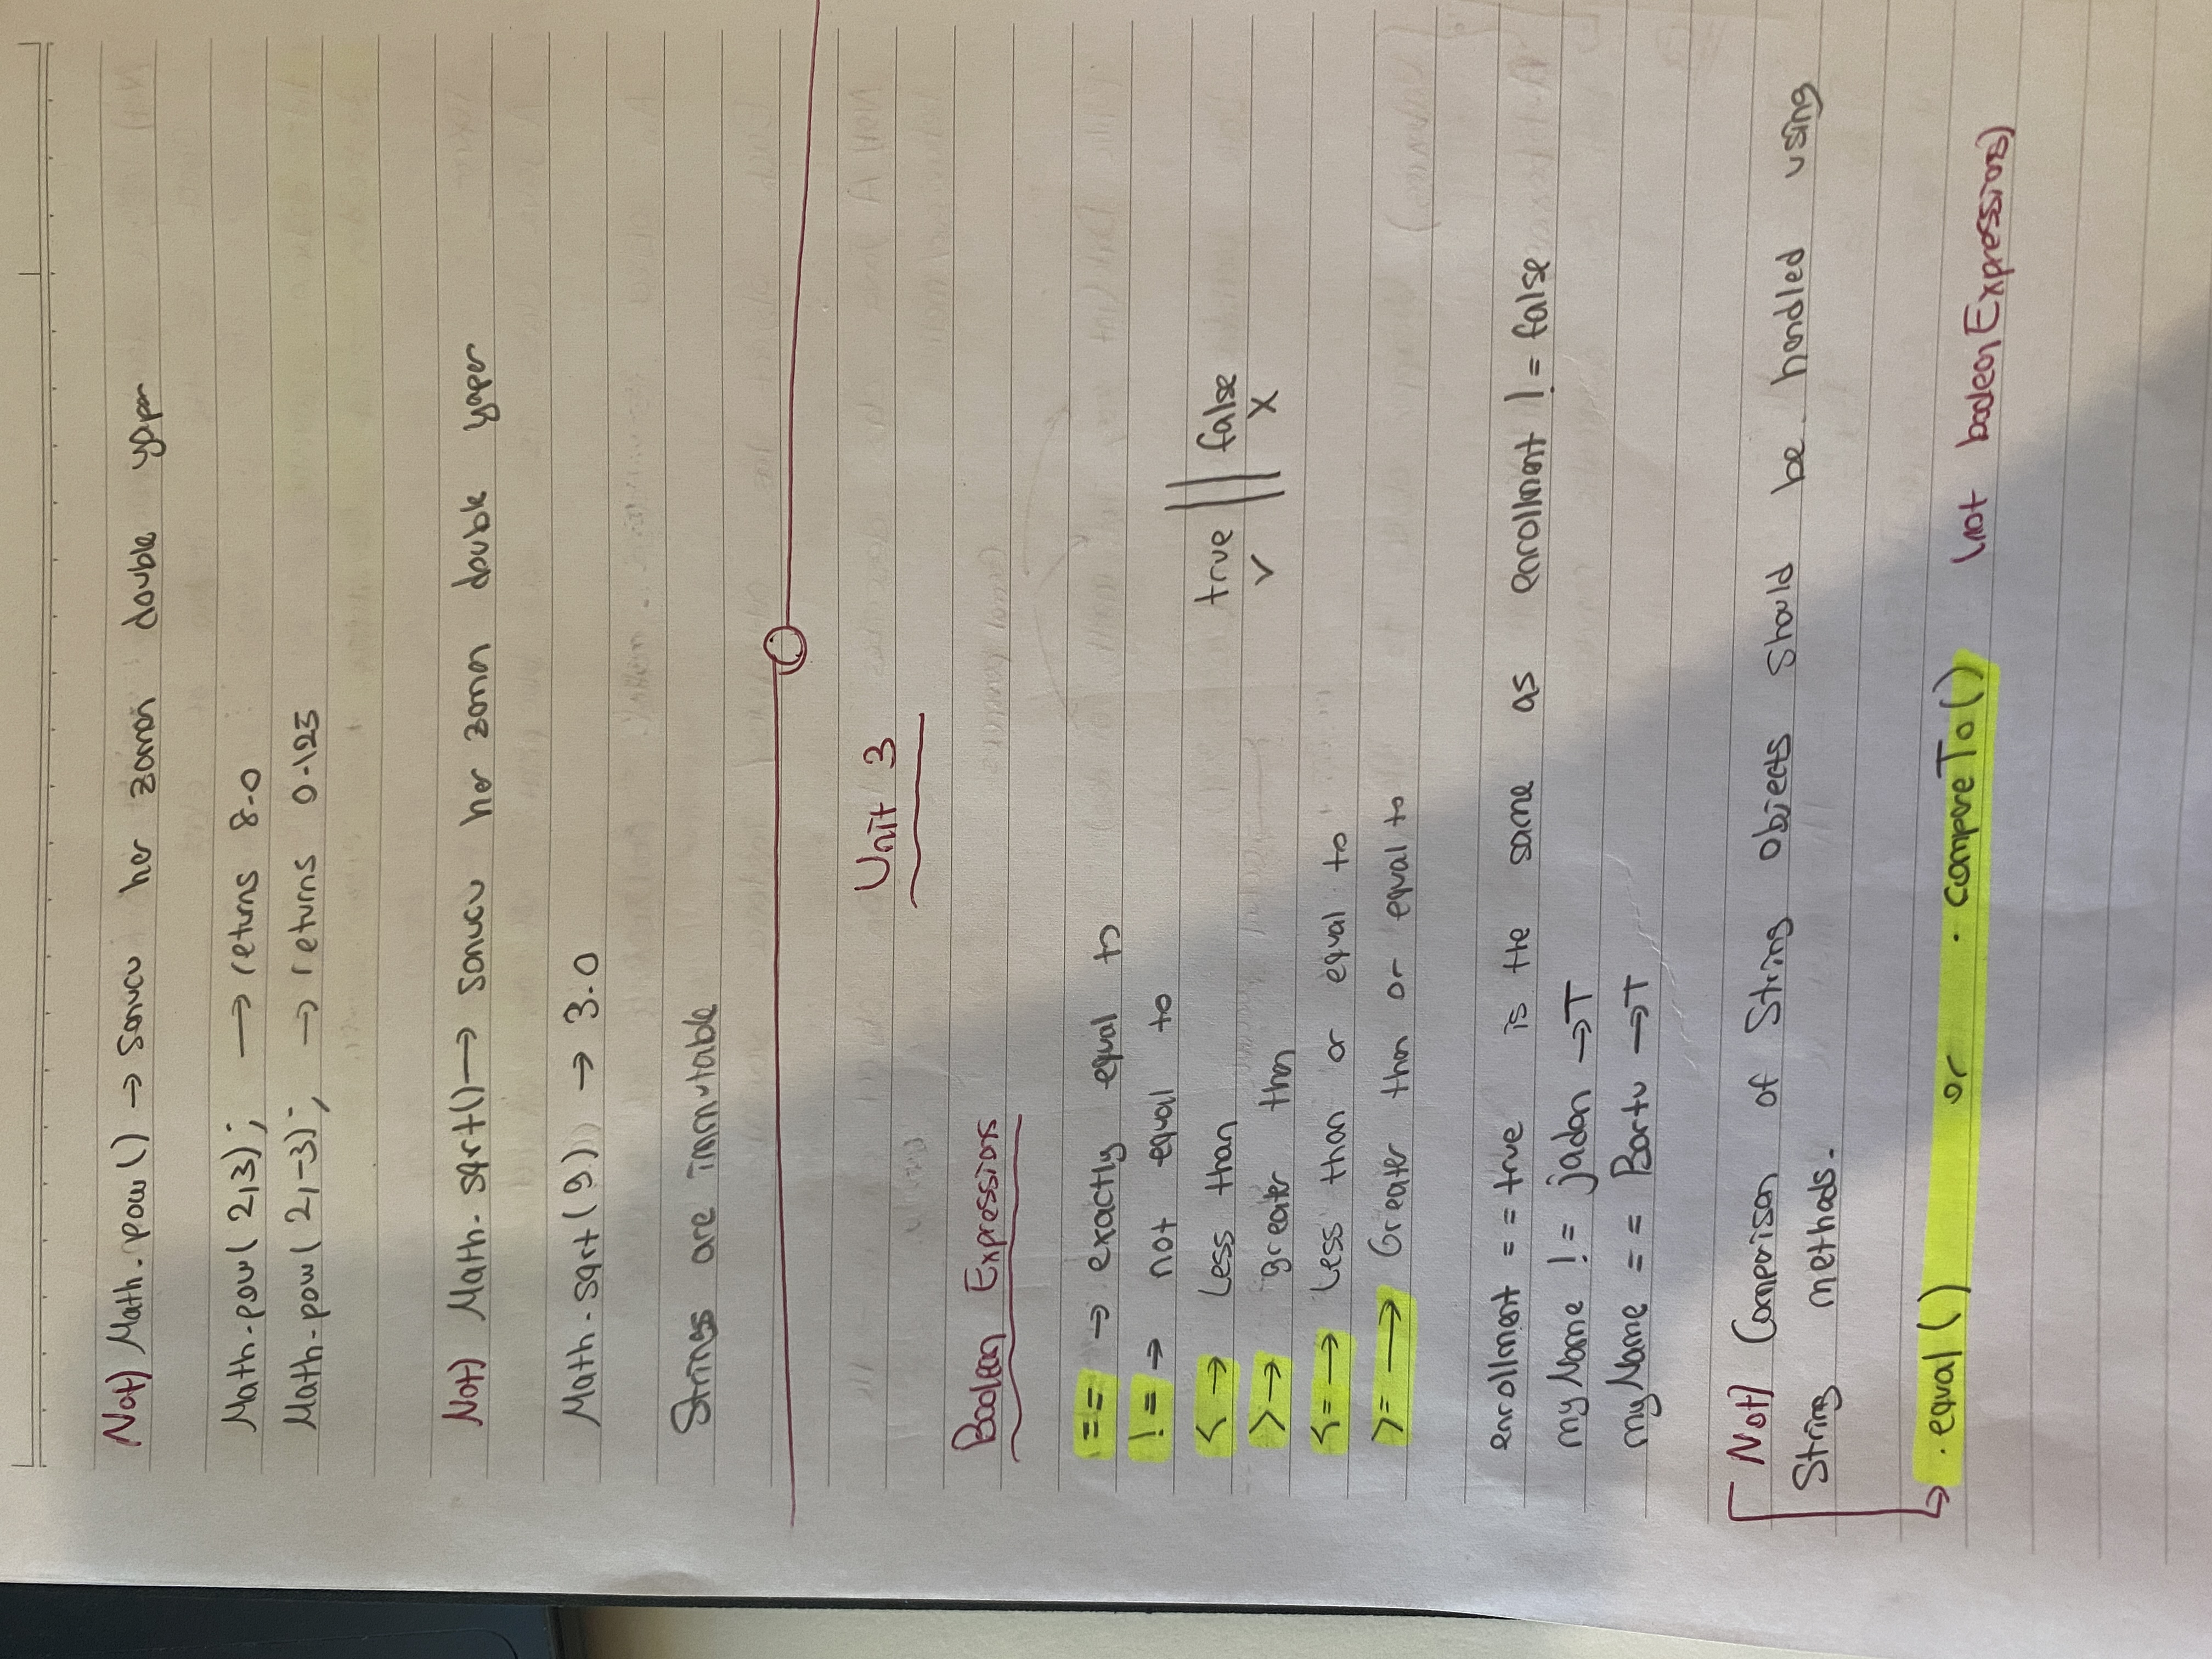 Not) Math.pow() → sonucu her zaman double yapar
Math.pow( 2,3); → returns 8.0
Math.pow( 2,-3); → returns 0.125
Not) Math.sqrt() → sonucu her zaman double yapar
Math.sqrt(9) → 3.0
Strings are immutable
Unit 3
Boolean Expressions
== → exactly equal to
!= → not equal to
< → Less than
> → greater than
<= → Less than or equal to
>= → Greater than or equal to
true || false
✓ X
enrollment == true is the same as enrollment != false
myName != jadan → T
myName == Bartu → T
Not) Comparison of String objects should be handled using
String methods.
.equal() or .compareTo() (not booleanExpressions)